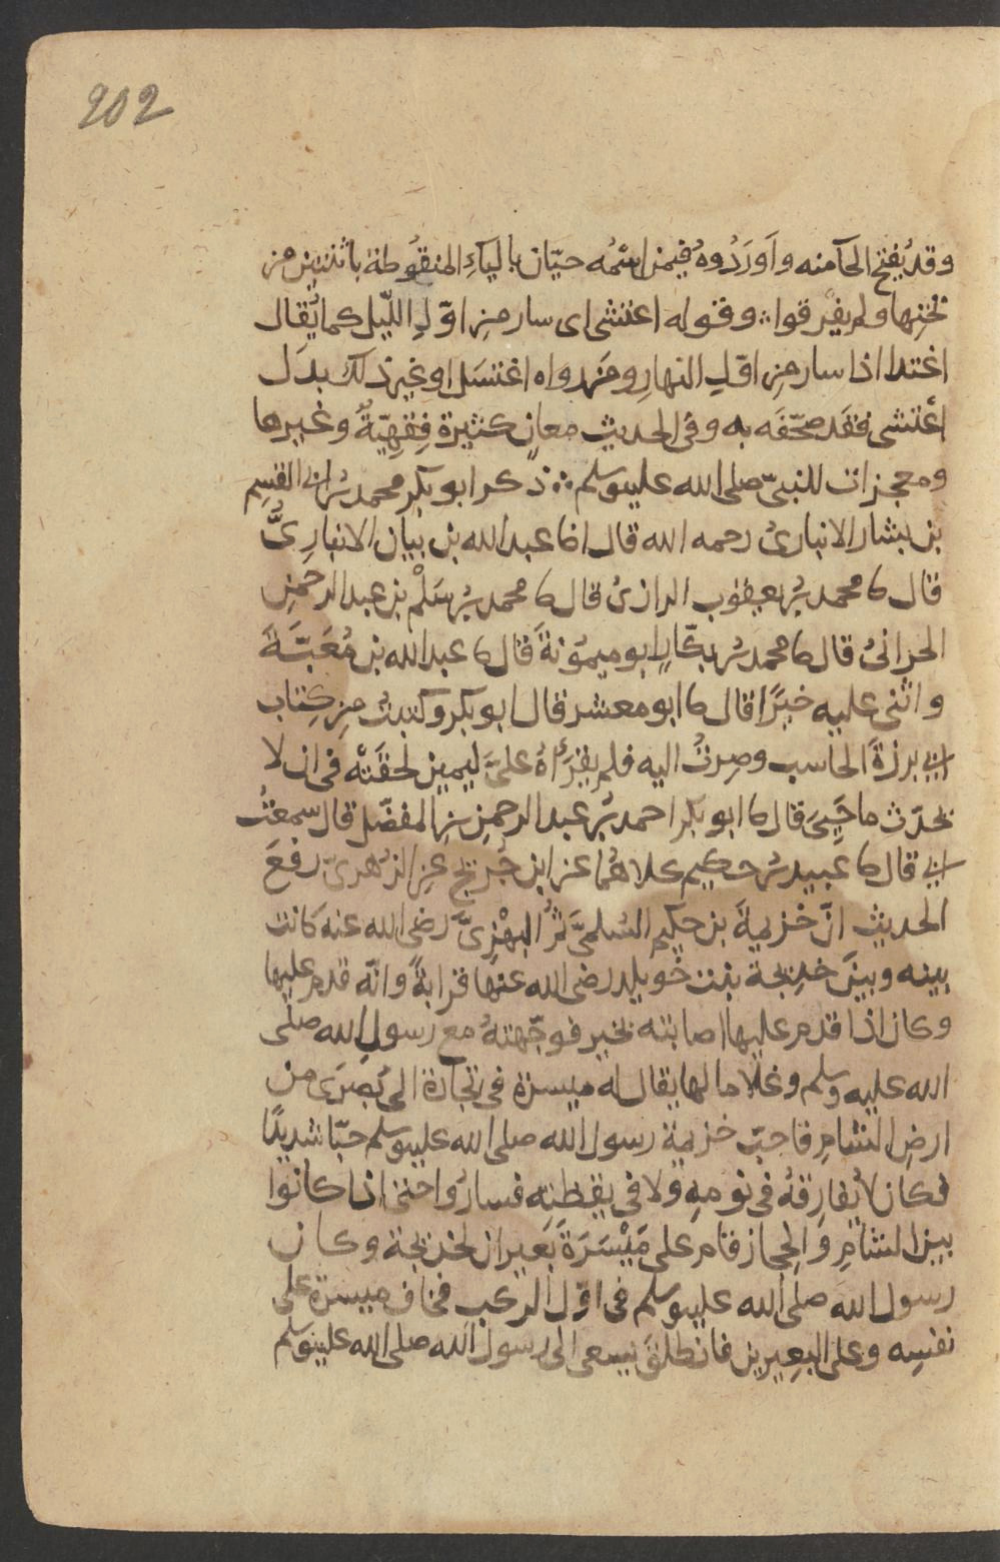 202
وقد يُفتح الحآ منه واَورَدُوهُ فيمن اسْمُه حيّان بالياءِ المنقُوطة باثنتين من
تحتِها ولم يفرّقوا ∴ وقوله اغتشى اى سار مِن اوّلِ اللّيل كما يُقال
اغتدا اذا سار مِن اوّلِ النهارِ ومَن رواه اغتسَل او غير ذلك بدَل
اغتشى فقَد صحّفَه به وفى الحديث معانٍ كثيرة فِقهِيّةٌ وغيرها
ومعجزات للنبىّ صلى الله عليه وسلم ∴ ذكر ابو بكر محمد بن ابى القسِم
بن بشار الانبارىُ رحمه الله قال انا عبد الله بن بيان الانبارِىُّ
قال نا محمد بن يعقوب الرازىُ قال نا محمد بن سَلْم بن عبد الرحمنِ
الحرانىُ قال نا محمد بن بكّارٍ ابو ميمُونةَ قال نا عبد الله بن
واثنى عليه خيرًا قال نا ابو معشر قال ابو بكر وكتبتُ مِن كِتاب
ابى برزةَ الحاسب وصِرتُ اليه فلم يقرَأهُ علىَّ ليمين لحقَتْه فى ان لا
يحدّث ما حَيِىَ قال نا ابو بكر احمد بن عبد الرحمنِ بنِ المفضّل قال سمعتُ
ابى قال نا عبيد بن حكيم كلاهُما عن ابن جُريج عنِ الزهرىّ رفعَ
الحديث انّ خزيمةَ بن حكيم السُلمىَّ ثمّ البهْزِىَّ رضى الله عنه كانت
بينه وبينَ خديجة بنت خُويلد رضى الله عنها قرابةٌ وانّه قدم عليها
وكان اذا قدم عليها اصابته بخير فوجّهتهُ مع رسولِ الله صلى
الله عليه وسلم وغلاما لها يقال له ميسرة فى تجارة الى بُصرَى من
ارضِ الشامِ فاحبّ خزيمة رسول الله صلى الله عليه وسلم حبّا شديدًا
فكان لا يُفارِقهُ فى نومهِ ولا فى يقظته فسارُوا حتى اذا كانوا
بين الشامِ والحجاز قام على مَيْسَرَةَ بَعِيران لخديجة وكان
رسول الله صلى الله عليه وسلم فى اوّل الركب فخاف ميسرة على
نفسِه وعلى البعِيرين فانطلقَ يسعى الى رسول الله صلى الله عليه وسلم